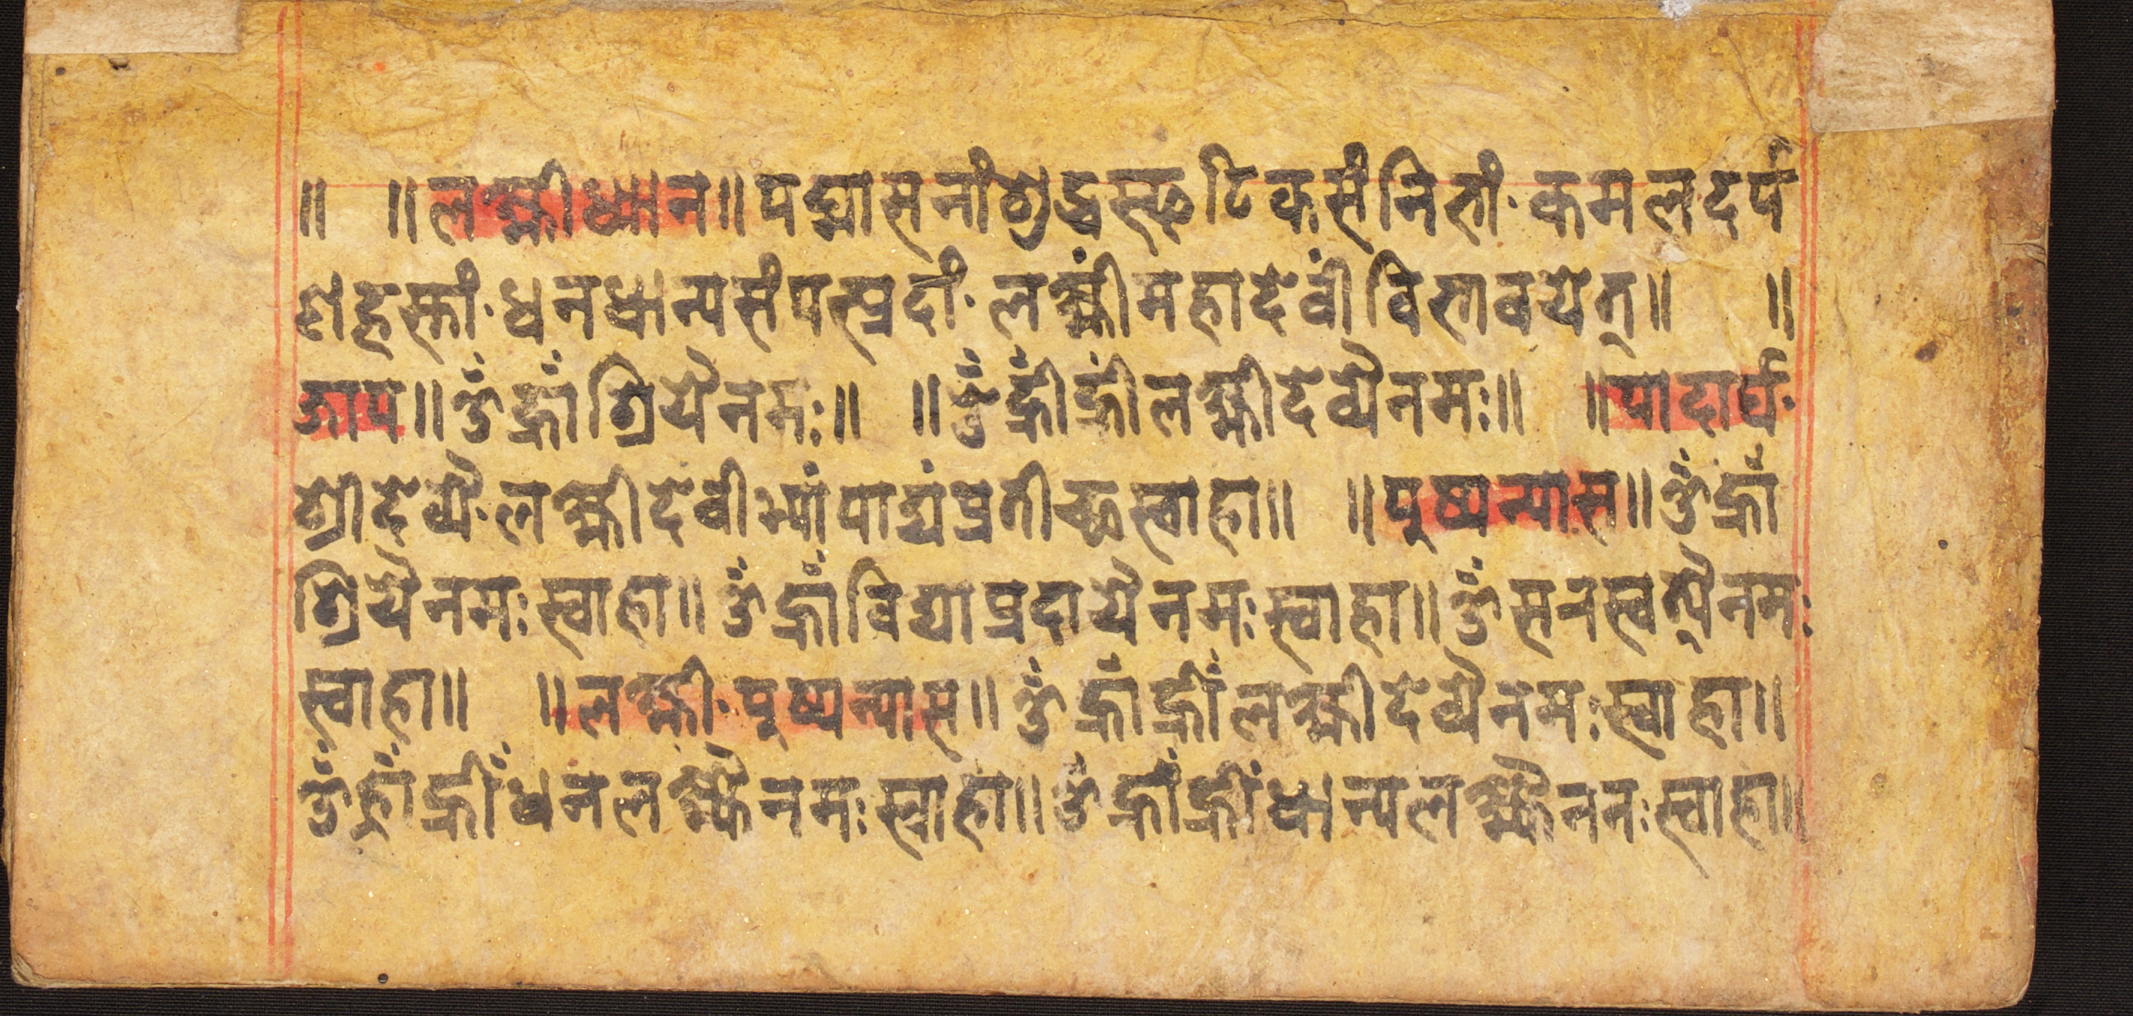 ॥ ॥ लक्ष्मीध्यान॥ पद्मासनां शुद्धस्फटिकसंनिभां · कमलदर्प
णहस्तां · धनधान्यसंपत्प्रदां · लक्ष्मीं महादेवीं विभावयेत्॥ ॥
जाप॥ ॐ ह्रां श्रियै नमः॥ ॥ ॐ ह्रीं ह्रीं लक्ष्मीदेव्यै नमः॥ ॥ पादार्घ ·
श्रीदेव्यै · लक्ष्मीदेवीभ्यां पाद्यं प्रतीच्छ स्वाहा॥ ॥ पुष्पन्यास॥ ॐ ह्रां
श्रियै नमः स्वाहा॥ ॐ ह्रां विद्याप्रदायै नमः स्वाहा॥ ॐ नमः
स्वाहा॥ ॥ लक्ष्मी · पुष्पन्यास॥ ॐ ह्रां ह्रीं लक्ष्मीदेव्यै नमः स्वाहा॥
ॐ ह्रां ह्रीं धनलक्ष्म्यै नमः स्वाहा॥ ॐ ह्रां ह्रीं धान्यलक्ष्म्यै ननः स्वाहा॥